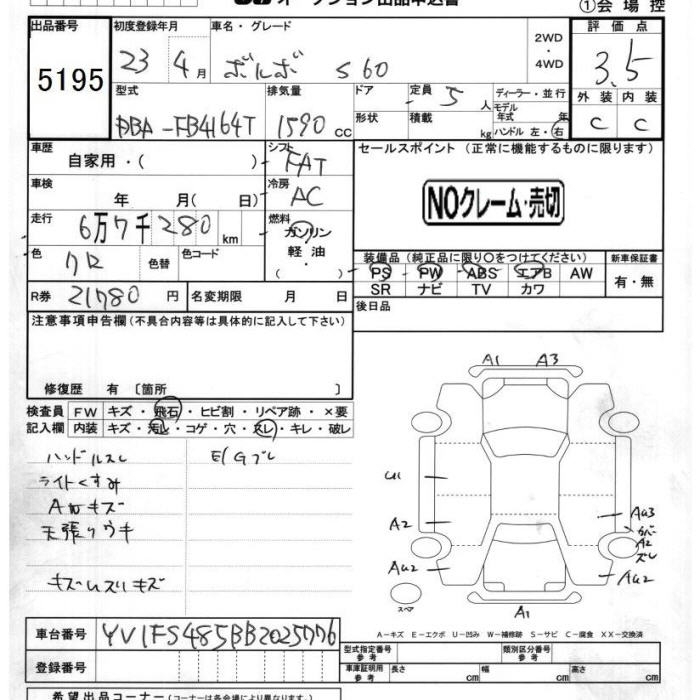 オークション出品申込書
①会場控
出品番号
5195
初度登録年月
23 4月
車名・グレード
ボルボ S60
2WD
4WD
評価点
3.5
外装 内装
C C
型式
DBA-FB4164T
排気量
1590 CC
ドア
形状
定員 5人
積載 kg
ディーラー・並行
モデル年式 年
ハンドル 左・右
車歴
自家用・( )
シフト
FAT
車検
年 月( 日)
冷房
AC
走行
6万7千280km
燃料
ガソリン
軽油
( )
色
クロ
色替
色コード
R券 21780円
名変期限 月 日
セールスポイント(正常に機能するものに限ります)
NOクレーム・売切
装備品(純正品に限り〇をつけてください)
新車保証書
PS PW ABS エアB AW
SR ナビ TV カワ
有・無
後日品
注意事項申告欄(不具合内容等は具体的に記入して下さい)
修復歴 有〔箇所 〕
検査員
記入欄
FW キズ・飛石・ヒビ割・リペア跡・×要
内装 キズ・汚レ・コゲ・穴・スレ・キレ・破レ
ハンドルスレ
E/Gブレ
ライトくすみ
AWキズ
天張りウキ
キズムスリキズ
A1 A3
U1
A2
AU2
AU3
カバー
A2
ズレ
AU2
A1
スペア
A-キズ E-エクボ U-凹み W-補修跡 S-サビ C-腐食 XX-交換済
車台番号
YV1FS485BB2025776
登録番号
型式指定番号
参考
類別区分番号
参考
車庫証明用
参考
長さ cm
幅 cm
高さ cm
希望出品コーナー(コーナーは各会場により異なります。)